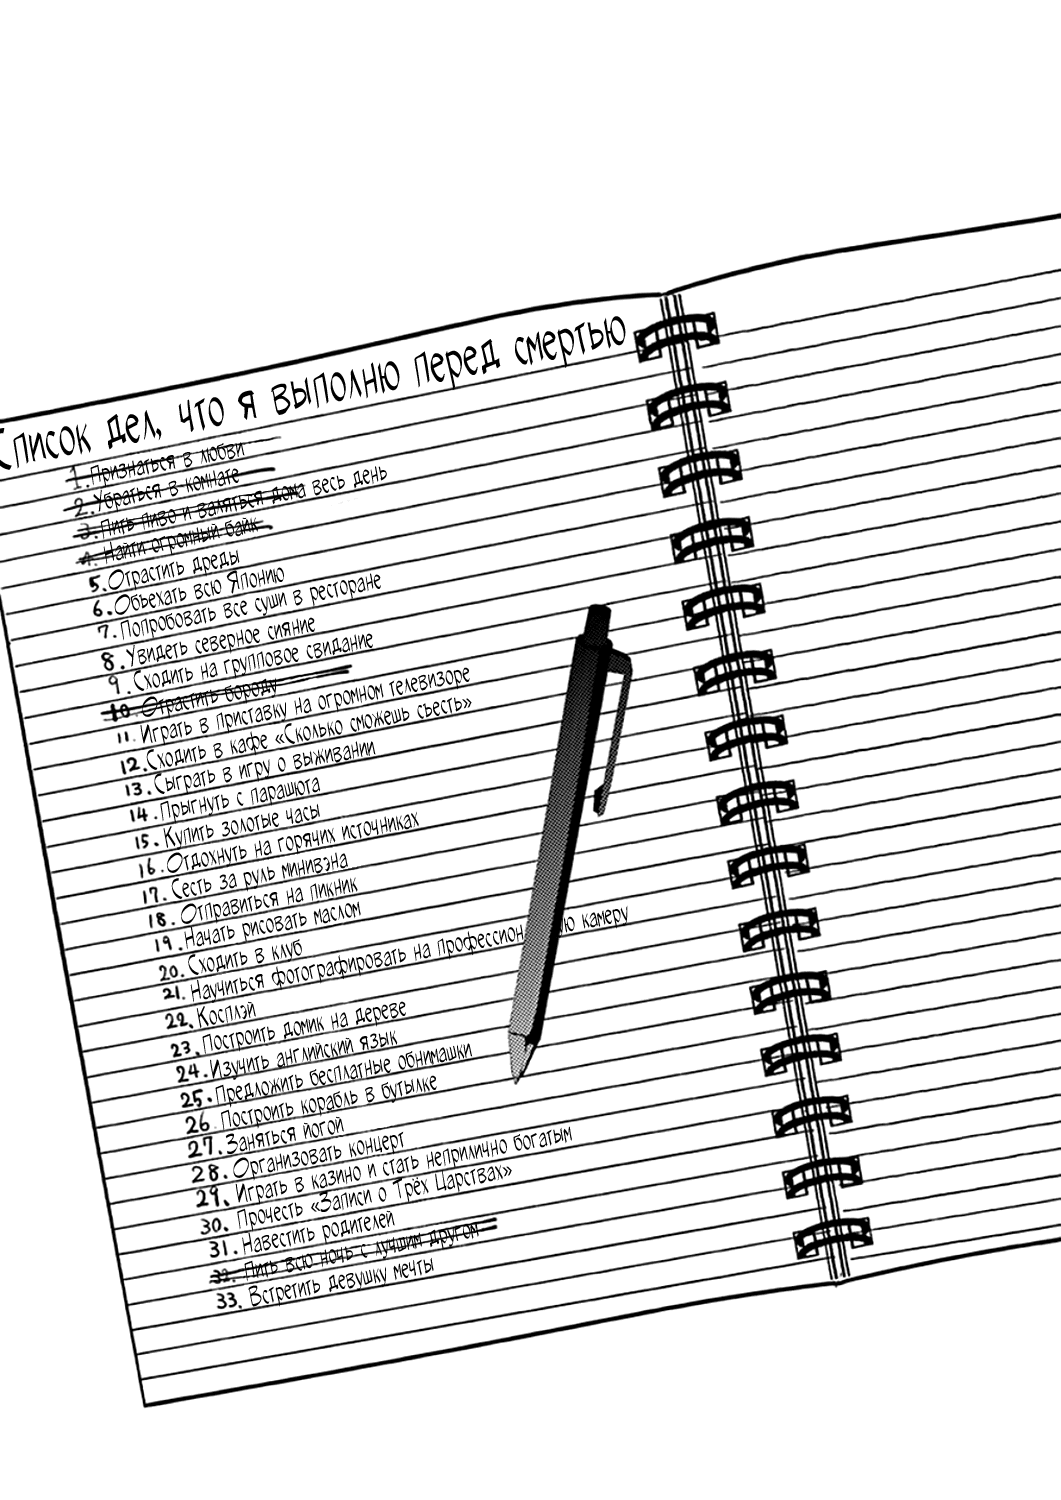 Список дел, что я выполню перед смертью
1. Признаться в любви
2. Убраться в комнате
3. Пить пиво и валяться дома весь день
4. Найти огромный байк
5. Отрастить дреды
6. Объехать всю Японию
7. Попробовать все суши в ресторане
8. Увидеть северное сияние
9. Сходить на групповое свидание
10. Отрастить бороду
11. Играть в приставку на огромном телевизоре
12. Сходить в кафе «Сколько сможешь съесть»
13. Сыграть в игру о выживании
14. Прыгнуть с парашюта
15. Купить золотые часы
16. Отдохнуть на горячих источниках
17. Сесть за руль минивэна
18. Отправиться на пикник
19. Начать рисовать маслом
20. Сходить в клуб
21. Научиться фотографировать на профессион ую камеру
22. Косплэй
23. Построить домик на дереве
24. Изучить английский язык
25. Предложить бесплатные обнимашки
26. Построить корабль в бутылке
27. Заняться йогой
28. Организовать концерт
29. Играть в казино и стать неприлично богатым
30. Прочесть «Записи о Трёх Царствах»
31. Навестить родителей
32. Пить всю ночь с лучшим другом
33. Встретить девушку мечты